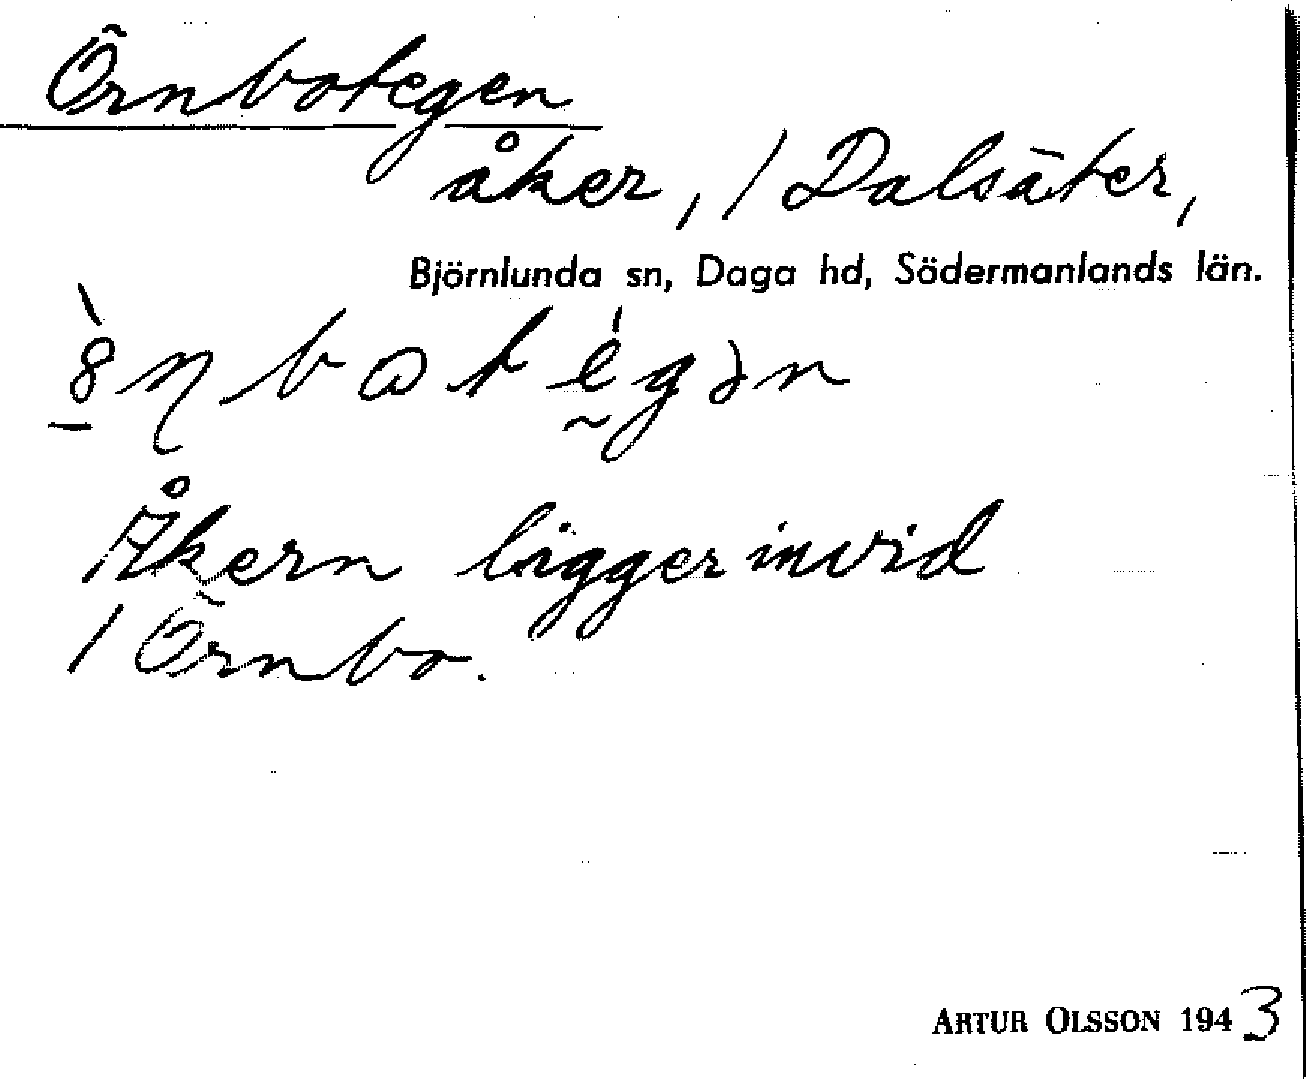 Örnbotegen
åker, / Dalsäter,
Björnlunda sn, Daga hd, Södermanlands län.
Åkern ligger invid
/ Örnbo.
ARTUR OLSSON 1943